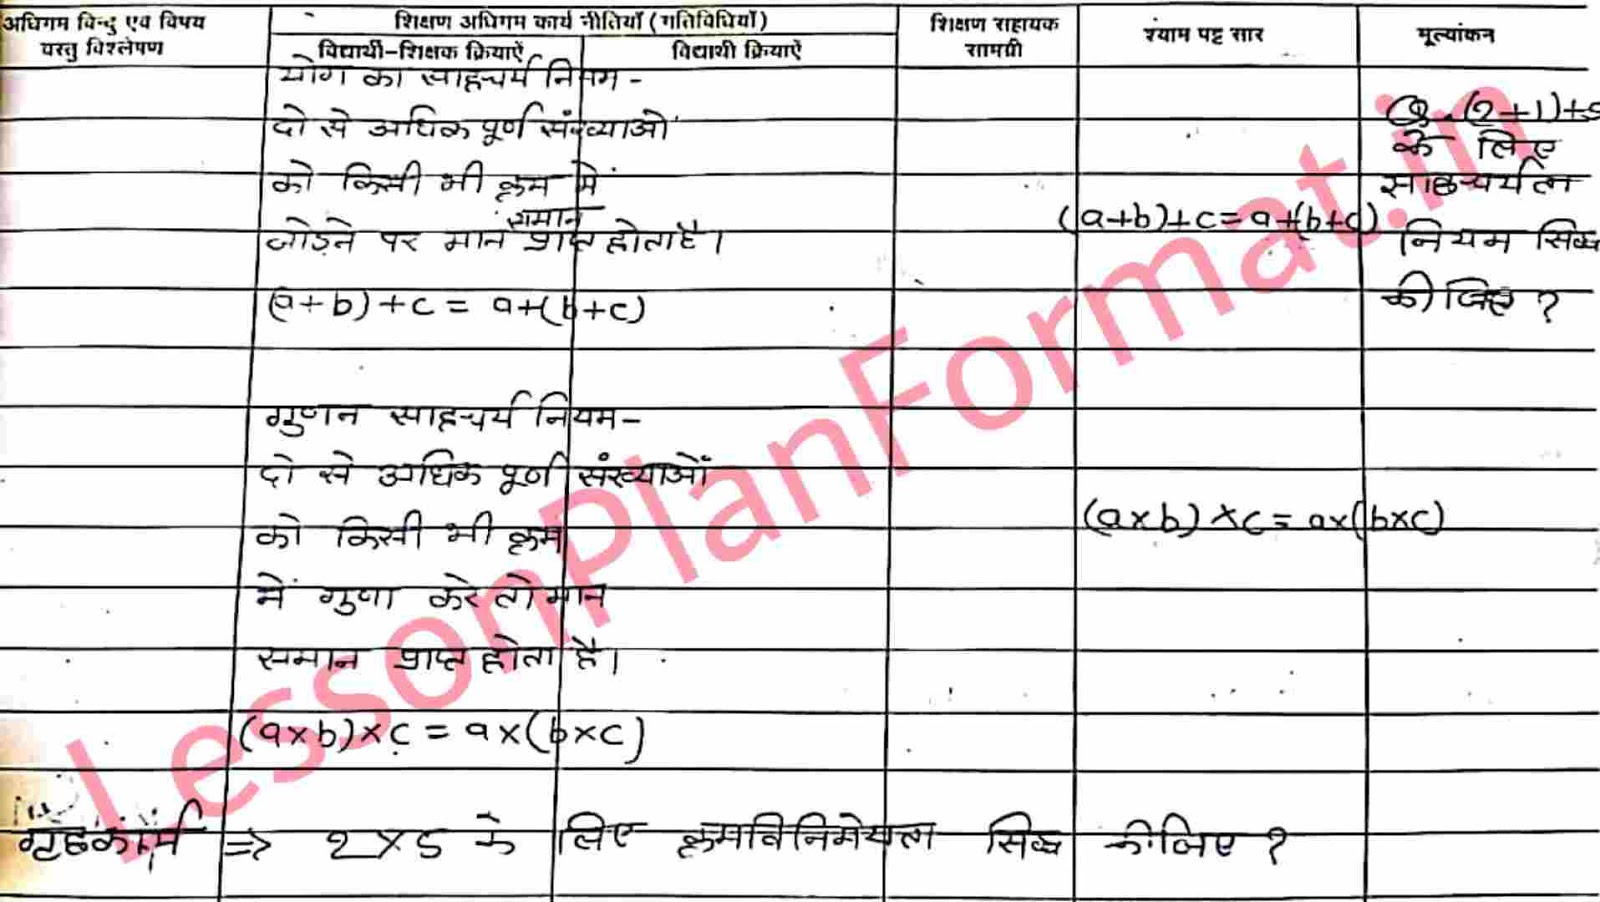 अधिगम विन्दु एवं विषय वस्तु विश्लेषण
शिक्षण अधिगम कार्य नीतियाँ (गतिविधियाँ)
विद्यार्थी-शिक्षक क्रियाऐं
विद्यार्थी क्रियाऐं
शिक्षण सहायक सामग्री
श्याम पट्ट सार
मूल्यांकन
योग का साहचर्य नियम -
दो से अधिक पूर्ण संख्याओं
को किसी भी क्रम में
समान
जोड़ने पर मान प्राप्त होता है।
(a+b)+c = a+(b+c)
गुणन साहचर्य नियम-
दो से अधिक पूर्ण संख्याओं
को किसी भी क्रम
में गुणा करे तो मान
समान प्राप्त होता है।
(a×b)×c = a×(b×c)
(a+b)+c = a+(b+c)
(a×b)×c = a×(b×c)
Q. (2+1)+5
के लिए
साहचर्यता
नियम सिद्ध
कीजिए ?
गृहकार्य ⇒ 2×5 के लिए क्रमविनिमेयता सिद्ध कीजिए ?
LessonPlanFormat.in